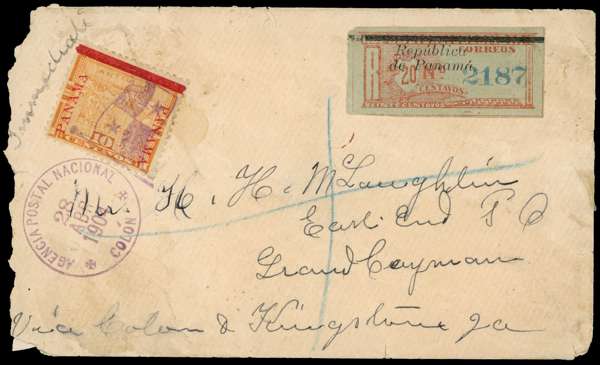 Immediate
PANAMA
PANAMA
10
CENTAVOS
R
CORREOS
República
de Panamá.
20 No
2187
CENTAVOS
VEINTE CENTAVOS
AGENCIA POSTAL NACIONAL
COLÓN
28
ABR
Mr. H. H. McLaughlin
East End P O
Grand Cayman
Via Colon & Kingston Ja